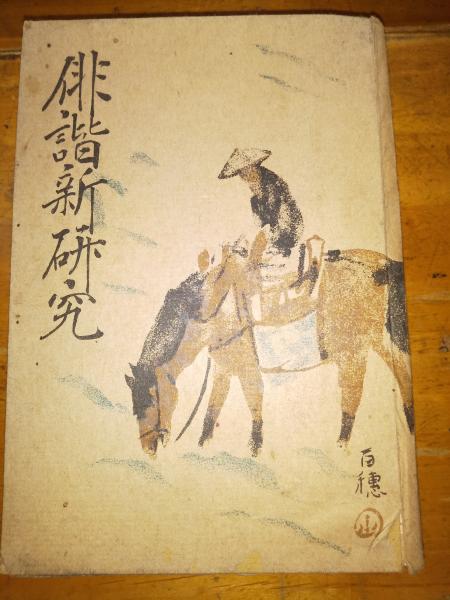 俳諧新研究
百穂